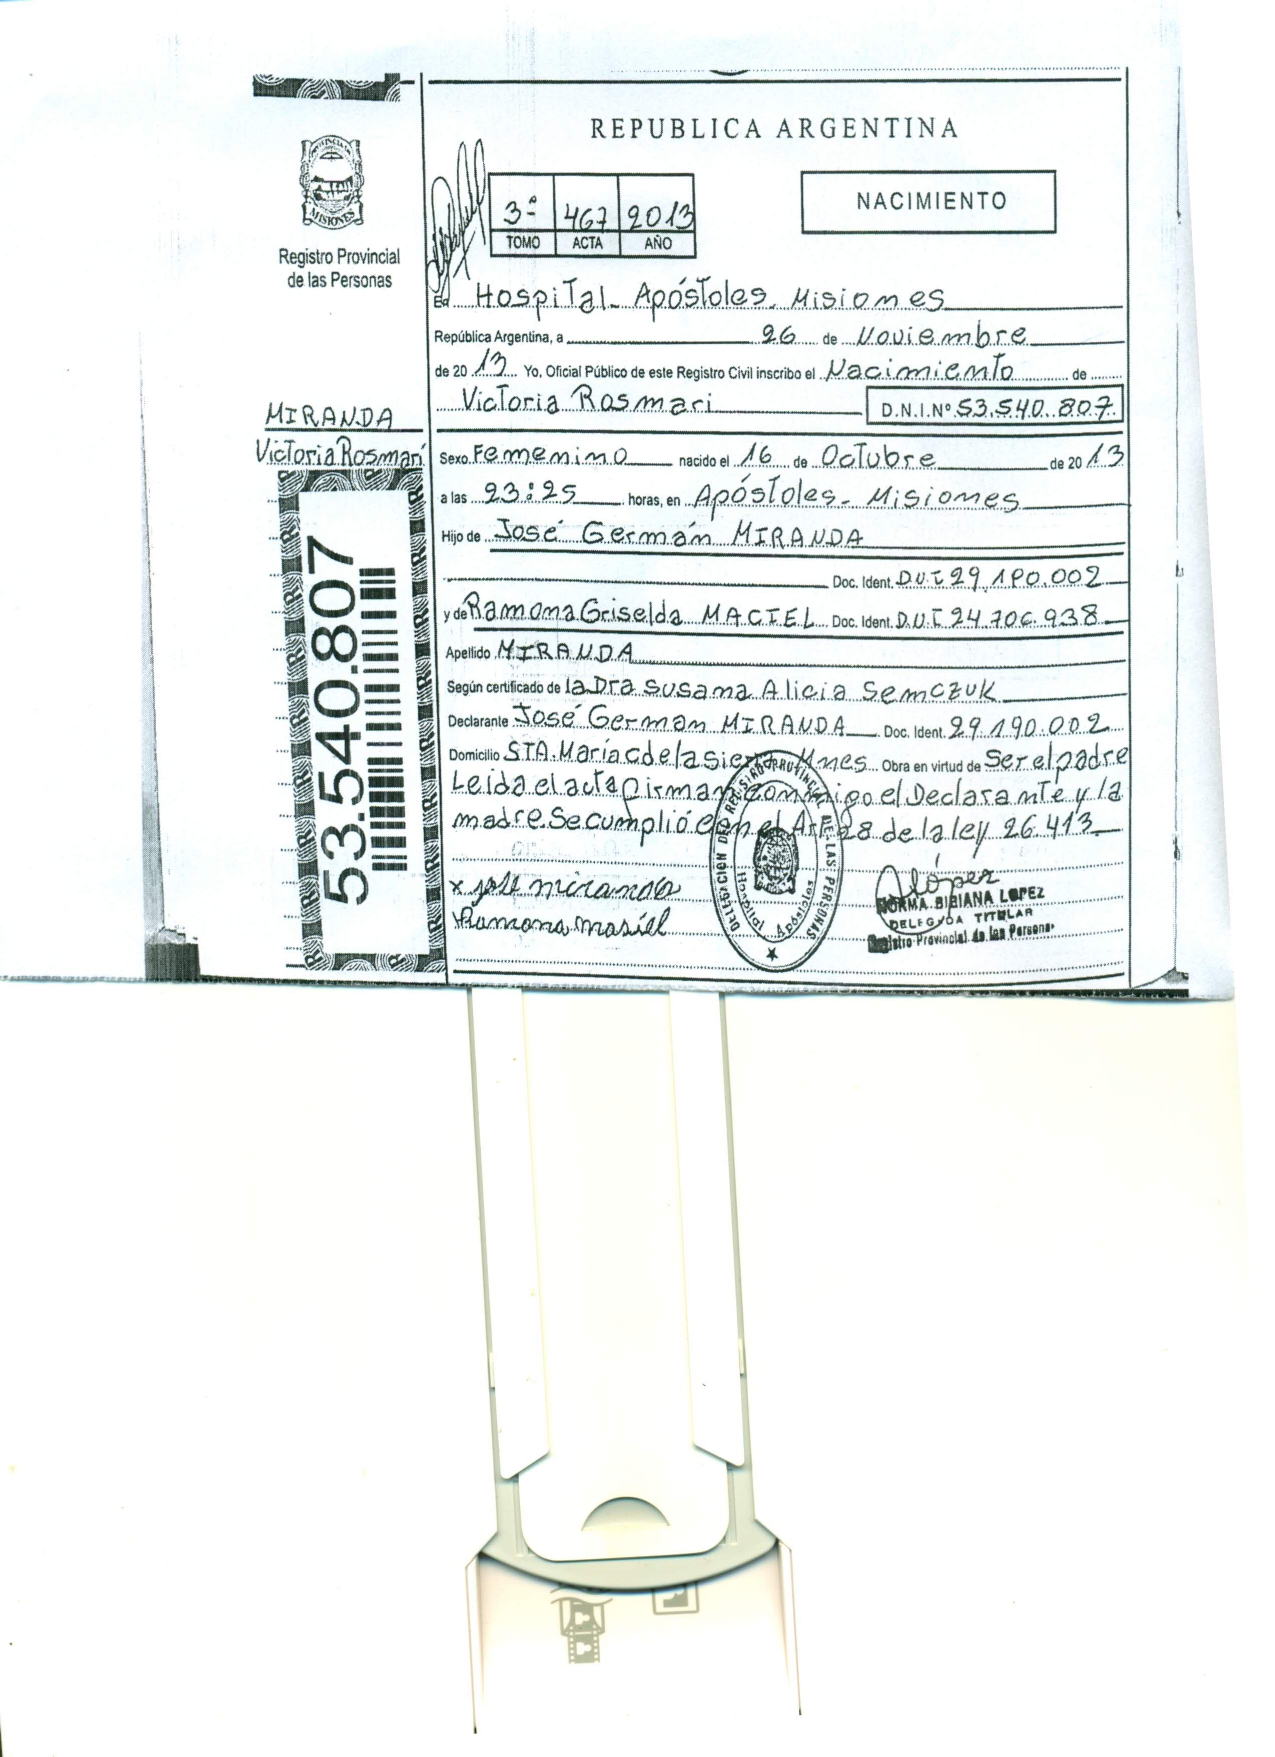 REPUBLICA ARGENTINA
NACIMIENTO
3ª 467 2013
TOMO ACTA AÑO
PROVINCIA DE
MISIONES
Registro Provincial
de las Personas
En Hospital Apóstoles Misiones
República Argentina, a 26 de Noviembre
de 2013 Yo, Oficial Público de este Registro Civil inscribo el Nacimiento de
Victoria Rosmari D.N.I.Nº 53.540.807
MIRANDA
Victoria Rosmari
Sexo Femenino nacido el 16 de Octubre de 2013
a las 23:25 horas, en Apóstoles - Misiones
Hijo de José Germán MIRANDA
Doc. Ident. D.N.I 29.190.002
y de Ramona Griselda MACIEL Doc. Ident. D.N.I 24.706.938
Apellido MIRANDA
Según certificado de la Dra Susana Alicia Semczuk
Declarante José Germán MIRANDA Doc. Ident. 29.190.002
Domicilio STA. María c de la sierra Mnes Obra en virtud de Ser el padre
Leida el acta firman conmigo el Declarante y la
madre. Se cumplió en el Art 28 de la ley 26.413
53.540.807
x jose miranda
Ramona masiel
DELEGACION DEL REGISTRO PROVINCIAL DE LAS PERSONAS
Hospital Apóstoles
López
NORMA BIBIANA LOPEZ
DELEGADA TITULAR
Registro Provincial de las Personas